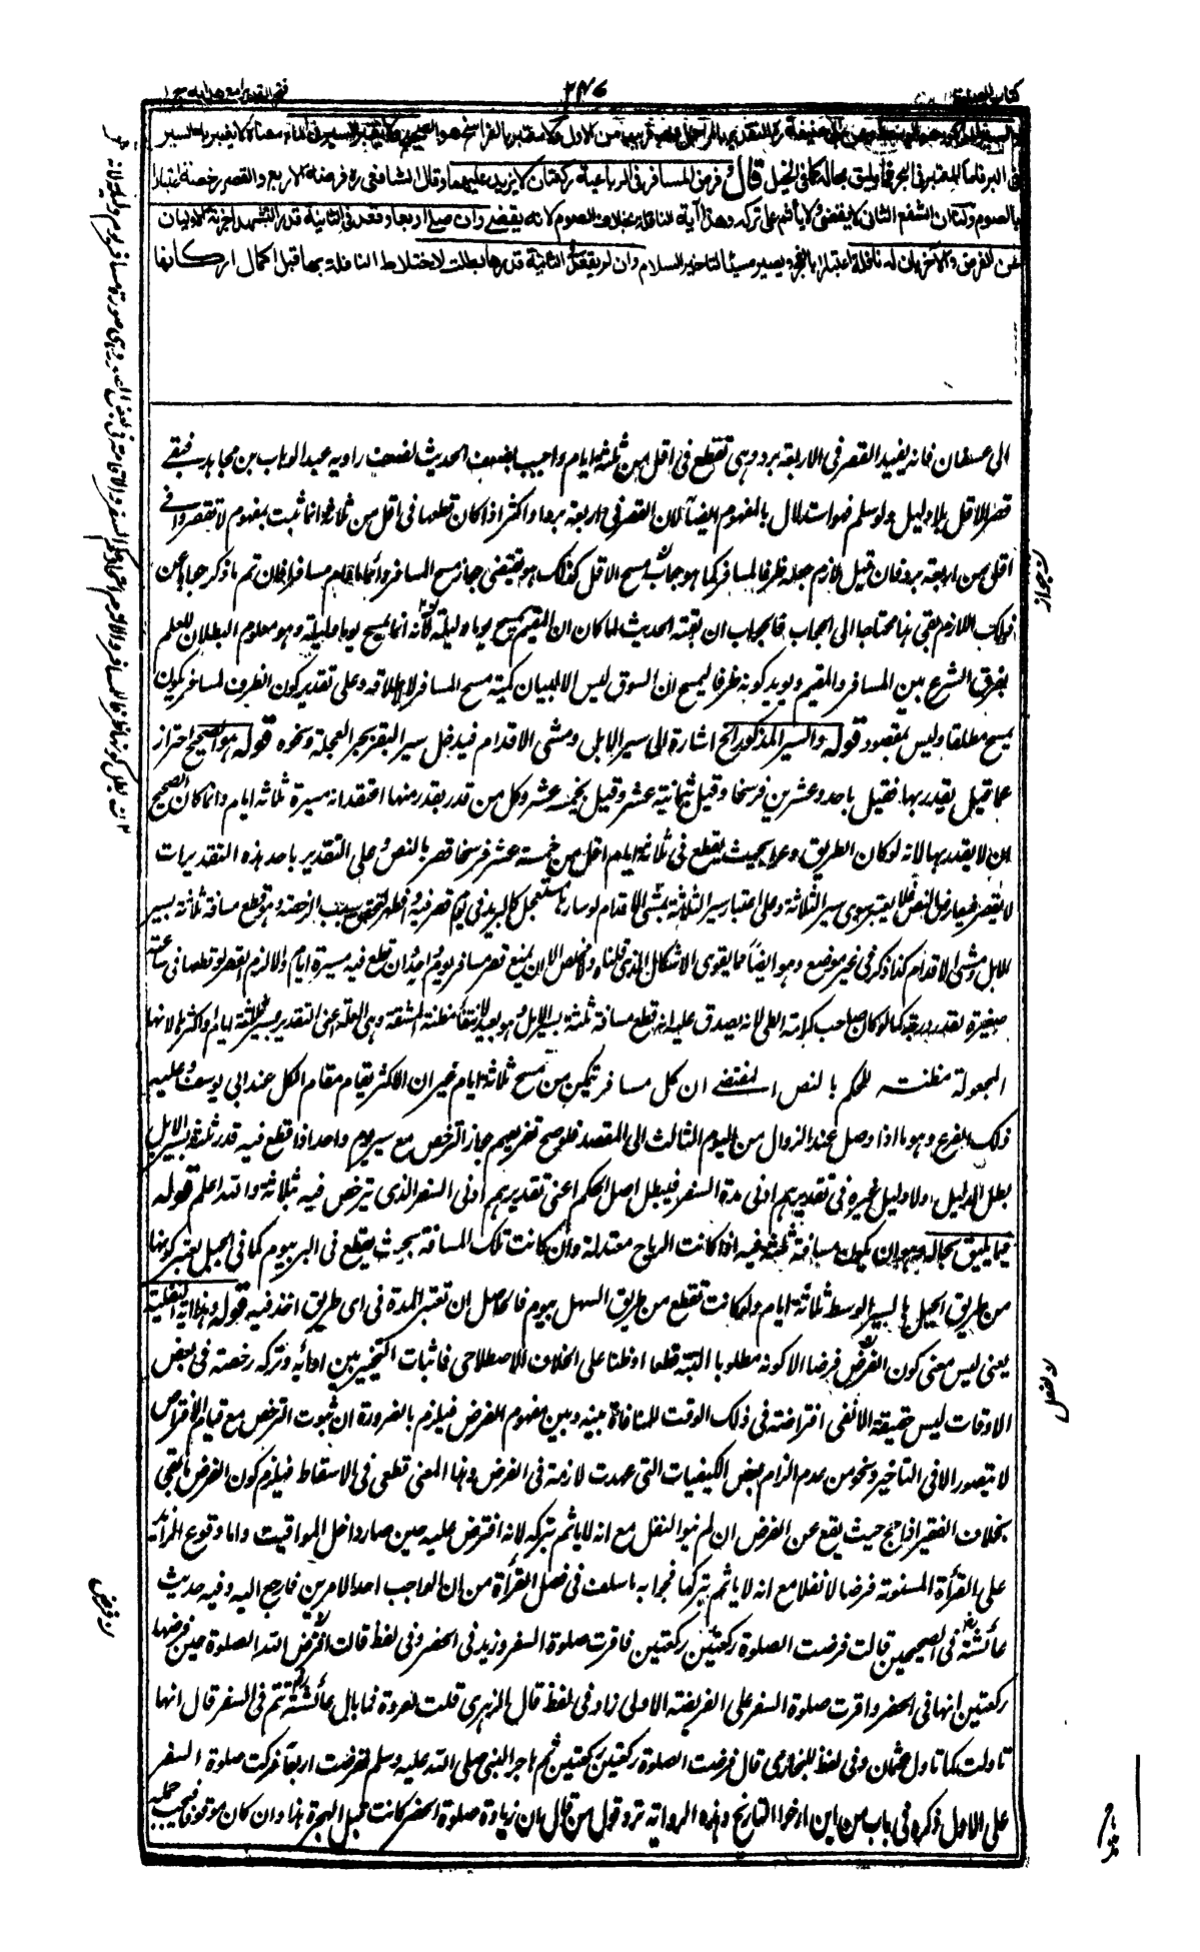 كتاب الصلوة
٢٤٦
فتح القدير مع هدايه ج ١
والسير المذكور هو الوسط وعن أبي حنيفة ره التقدير بالمراحل وهو قريب من الاول ولا معتبر بالفراسخ هو الصحيح ولا يعتبر السير في الماء معناه لا يعتبر به السير
في البر فاما المعتبر في البحر فما يليق بحاله كما في الجبل قال وفرض المسافر في الرباعية ركعتان لا يزيد عليهما وقال الشافعي ره فرضه الاربع والقصر رخصة اعتبارا
بالصوم ولنا ان الشفع الثاني لا يقضى ولا يأثم على تركه وهذا آية النافلة بخلاف الصوم لانه يقضى وان صلى اربعا وقعد في الثانية قدر التشهد اجزأته الاوليان
عن الفرض والاخريان له نافلة اعتبارا بالفجر ويصير مسيئا لتاخير السلام وان لم يقعد في الثانية قدرها بطلت لاختلاط النافلة بها قبل اكمال اركانها
الى عسفان فانه يفيد القصر في الاربعة برد وهي تقطع في اقل من ثلثة ايام واجيب بضعف الحديث لضعف راويه عبد الوهاب بن مجاهد فبقى
قصر الاقل بلا دليل ولو سلم فهو استدلال بالمفهوم ايضا لان القصر في اربعة برد او اكثر اذا كان قطعها في اقل من ثلاثة انما ثبت بمفهوم لا تقصروا في
اقل من اربعة برد فان قيل لازم جعله ظرفا لمسافر كما هو جاز مسح الاقل كذلك هو يقتضي جواز مسح المسافر دائما مادام مسافرا فان تم ما ذكر جوابا عن
ذلك اللازم بقى هذا محتاجا الى الجواب فالجواب ان بقية الحديث لما كان ان المقيم يمسح يوما وليلة انما يمسح يوما وليلة وهو معلوم البطلان للعلم
بفرق الشرع بين المسافر والمقيم ويويد كونه ظرفا ليمسح ان السوق ليس الا لبيان كمية مسح المسافر لا لاطلاقه وعلى تقدير كون الظرف لمسافر يكون
يمسح مطلقا وليس بمقصود قوله والسير المذكور الخ اشارة الى سير الابل ومشى الاقدام فيدخل سير البقر بجر العجلة ونحوه قوله هو الصحيح احتراز
عما قيل يقدر بها فقيل باحد وعشرين فرسخا وقيل بثمانية عشر وقيل بخمسة عشر وكل من قدر بقدر منها اعتقد انه مسيرة ثلاثة ايام وانما كان الصحيح
ان لا يقدر بها لانه لو كان الطريق وعرا بحيث يقطع في ثلاثة ايام اقل من خمسة عشر فرسخا قصر بالنص وعلى التقدير باحد هذه التقديرات
لا يقصر فيعارض النص فلا يعتبر سوى سير الثلاثة وعلى اعتبار سير الثلاثة بمشى الاقدام لو سارها مستعجل كالبريد في يوم قصر فيه وافطر لتحقق سبب الرخصة وهو قطع مسافة ثلاثة بسير
الابل ومشى الاقدام كذا ذكر في غير موضع وهو ايضا مما يقوى الاشكال الذي قلناه ولا مخلص الا ان يمنع قصر مسافر يوم واحد وان قطع فيه مسيرة ايام والا لزم القصر لو قطعها في ساعة
صغيرة بقدر درجة كما لو كان صاحب كرامة الطي لانه يصدق عليه انه قطع مسافة ثلثة بسير الابل وهو بعيد لانتفاء مظنة المشقة وهي العلة اعني التقدير بسير ثلثة ايام او اكثرها لانها
المجعولة مظنة للحكم بالنص المقتضى ان كل مسافر يتمكن من مسح ثلاثة ايام غير ان الاكثر يقام مقام الكل عند ابي يوسف وعليه
ذلك الفرع وهو ما اذا وصل عند الزوال من اليوم الثالث الى المقصد فلو صح تفريعهم جاز الترخص مع سير يوم واحد اذا قطع فيه قدر ثلثة بسير الابل
بطل الدليل ولا دليل غيره في تقديرهم ادنى مدة السفر فيبطل اصل الحكم اعني تقديرهم ادنى السفر الذي يترخص فيه بثلاثة والله اعلم قوله
فيما يليق بحاله وهو ان يكون مسافة ثلثة فيه اذا كانت الرياح معتدلة وان كانت تلك المسافة بحيث يقطع في البر بيوم كما في الجبل يعتبر كونها
من طريق الجبل بالسير الوسط ثلاثة ايام ولو كانت تقطع من طريق السهل بيوم فالحاصل ان تعتبر المدة في اى طريق اخذ فيه قوله وهذا اية النفلية
يعني ليس معنى كون الفرض فرضا الا كونه مطلوبا البتة قطعا او ظنا على الخلاف الاصطلاحي فاثبات التخيير بين ادائه وتركه رخصة في بعض
الاوقات ليس حقيقة الا نفى افتراضه في ذلك الوقت للمنافاة بينه وبين مفهوم الفرض فيلزم بالضرورة ان ثبوت الترخص مع قيام الافتراض
لا يتصور الا في التاخير ونحوه من عدم الزام بعض الكيفيات التي عهدت لازمة في الفرض وهذا المعنى قطعي في الاسقاط فيلزم كون الفرض ما بقى
بخلاف الفقير اذا حج حيث يقع عن الفرض ان لم ينو النفل مع انه لا يأثم بتركه لانه افترض عليه حين صار داخل المواقيت واما وقوع الزائد
على القراءة المسنونة فرضا لا نفلا مع انه لا ياثم بتركها فجوابه ما سلف في فصل القراءة من ان الواجب احد الامرين فارجع اليه وفيه حديث
عائشة رض في الصحيحين قالت فرضت الصلوة ركعتين ركعتين فاقرت صلوة السفر وزيد في الحضر وفي لفظ قالت فرض الله الصلوة حين فرضها
ركعتين ثم اتمها في الحضر واقرت صلوة السفر على الفريضة الاولى زاد في لفظ قال الزهري قلت لعروة فما بال عائشة تتم في السفر قال انها
تاولت كما تاول عثمان وفي لفظ للبخاري قال فرضت الصلوة ركعتين ركعتين ثم هاجر النبي صلى الله عليه وسلم ففرضت اربعا وتركت صلوة السفر
على الاول ذكره في باب من اين ارخوا التاريخ وهذه الرواية ترد قول من قال ان زيادة صلوة الحضر كانت قبل الهجرة هذا وان كان موقوفا فيجب حمله